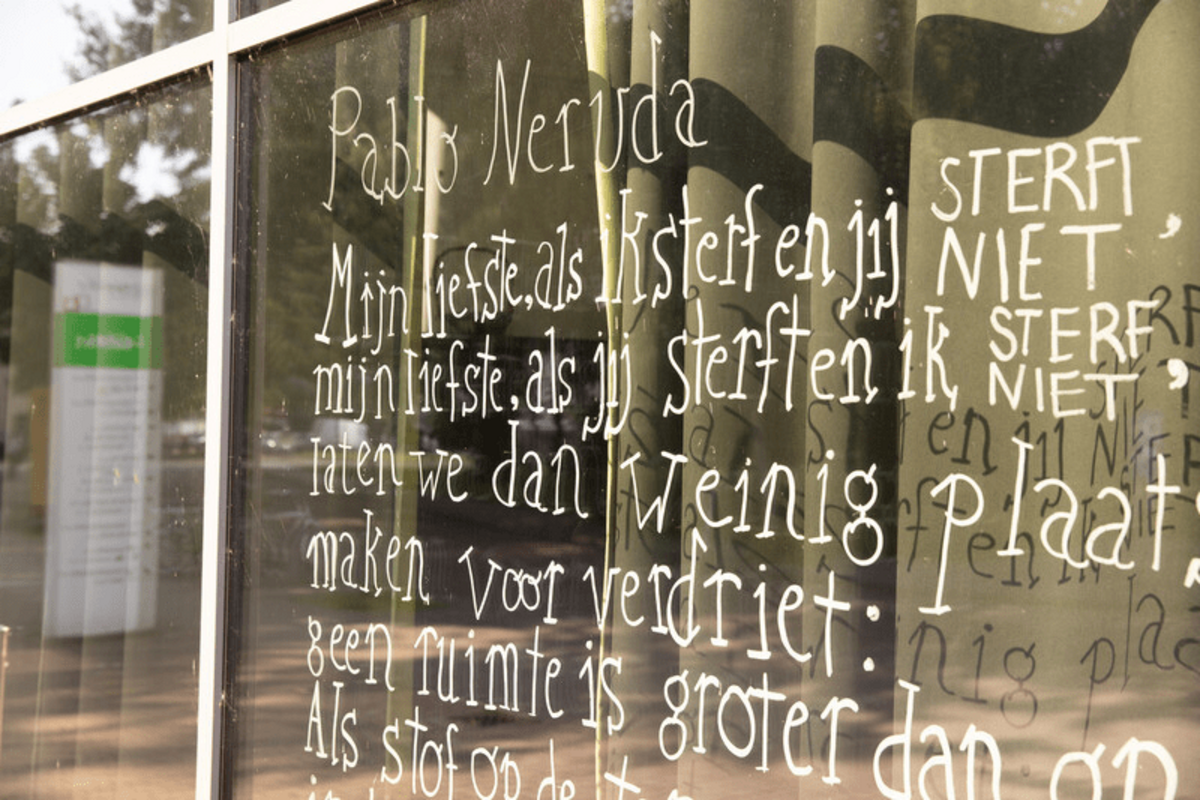 Pablo Neruda
Mijn liefste, als ik sterf en jij STERFT NIET,
mijn liefste, als jij sterft en ik STERF NIET,
laten we dan weinig plaat
maken voor verdriet:
geen ruimte is groter dan
Als stof op de